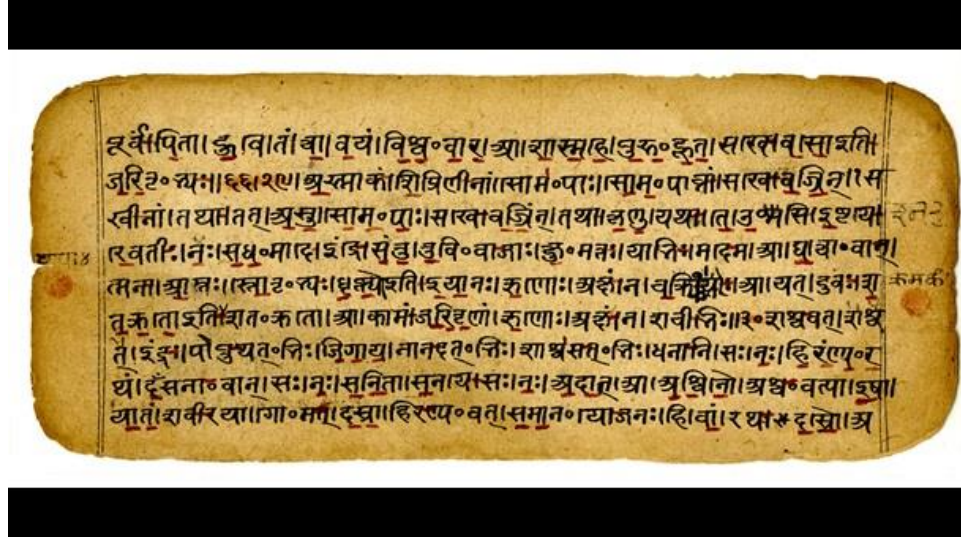 पूर्वं।पिता।हुवे।तं।त्वा।वयं।विश्व॰वार।आ।शास्महे।पुरु॰हूत।सखे।वसो इति।
जरितृ॰भ्यः॥२९॥अस्माकं।शिप्रिणीनां।सोम॰पाः।सोम॰पाव्नां।सखे।वज्रिन्॥स
खीनां।तथा।तत्।अस्तु।सोम॰पाः।सखे।वज्रिन्।तथा।कृणु।यथा।ते।उश्मसि।इष्टये।
रेवतीः।नः।सध॰मादे।इंद्रे।संतु।तुवि॰वाजाः।क्षु॰मंतः।याभिः।मदेम।आ।घ।त्वा॰वान्।
त्मना।आप्तः।स्तोतृ॰भ्यः।धृष्णो इति।इयानः।ऋणोः।अक्षं।न।चक्र्योः।आ।यत्।दुवः।श
तक्रतो इति शत॰क्रतो।आ।कामं।जरितॄणां।ऋणोः।अक्षं।न।शचीभिः॥३०॥शश्वत्।
इंद्रः।पोप्रुथत्॰भिः।जिगाय।नानदत्॰भिः।शाश्वसत्॰भिः।धनानि।सः।नः।हिरण्य॰र
थं।दंसना॰वान्।सः।नः।सनिता।सनये।सः।नः।अदात्।आ।अश्विनौ।अश्व॰वत्या।इषा।
यातं।शवीरया।गो॰मत्।दस्रा।हिरण्य॰वत्।समान॰योजनः।हि।वां।रथः।दस्रौ।अ